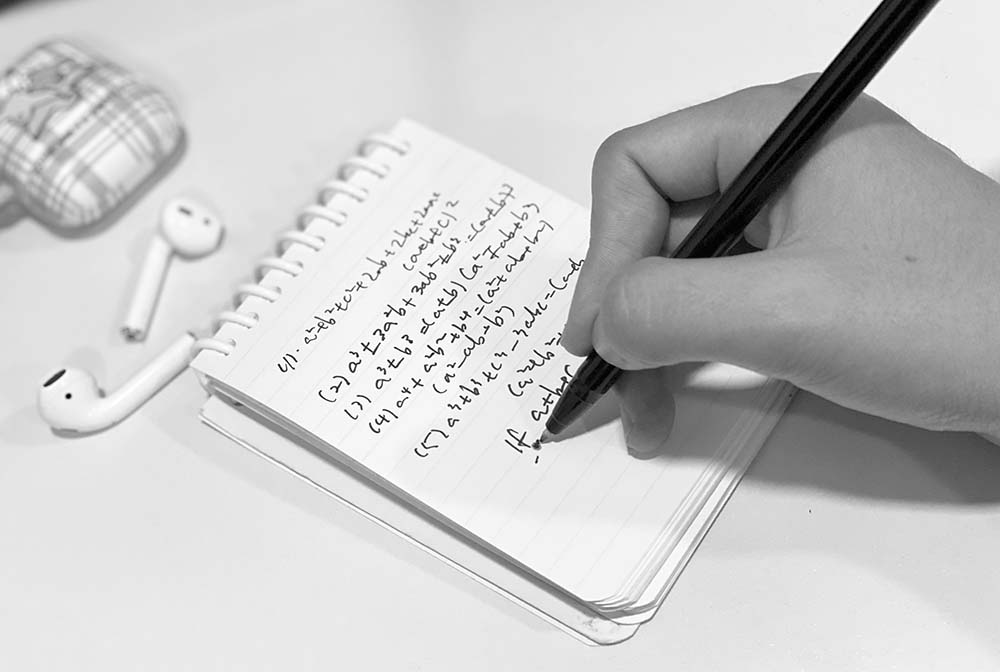 (1). a²+b²+c²+2ab+2bc+2ac
(a+b+c)²
(2) a³±3a²b+3ab²±b³=(a±b)³
(3) a³±b³=(a±b)(a²∓ab+b²)
(4) a⁴+a²b²+b⁴=(a²+ab+b²)
(a²-ab+b²)
(5) a³+b³+c³-3abc=(a+b
(a²+b²
If a+b+c